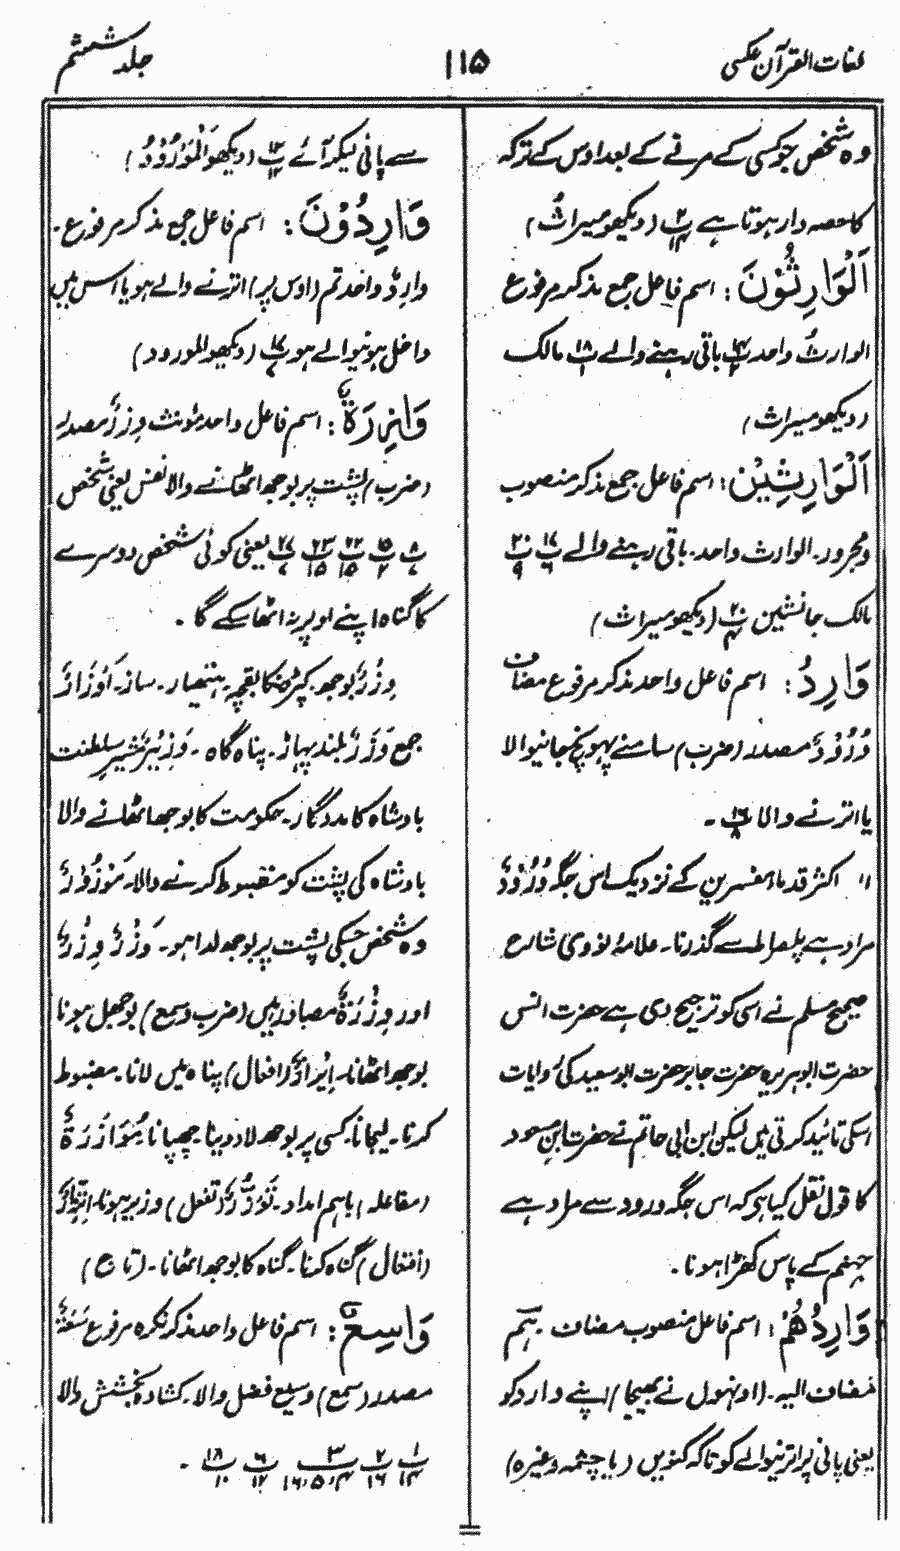 لغات القرآن عکسی
۱۱۵
جلد ششم
وہ شخص جو کسی کے مرنے کے بعد اوس کے ترکہ
کا حصہ دار ہوتا ہے پ۲ ۱۴ (دیکھو میراثُ)
اَلْوَارِثُوْنَ: اسم فاعل جمع مذکر مرفوع
الوارثُ واحد پ۱۴ ۲ باقی رہنے والے پ۱۸ ۱ مالک
(دیکھو میراث)
اَلْوَارِثِیْنَ: اسم فاعل جمع مذکر منصوب
و مجرور۔ الوارث واحد۔ باقی رہنے والے پ۱۷ ۶ پ۲۰ ۹
مالک جانشین پ۲۰ ۴ (دیکھو میراث)
وَارِدُ: اسم فاعل واحد مذکر مرفوع مضاف
وُرُوْدٌ مصدر (ضرب) سامنے پہونچ جانیوالا
یا اترنے والا پ۱۶ ۸ ۔
〃 اکثر قدماء مفسرین کے نزدیک اس جگہ وُرُوْدٌ
مراد ہے پلصراط سے گذرنا۔ علامۂ نووی شارح
صحیح مسلم نے اسی کو ترجیح دی ہے حضرت انس
حضرت ابو ہریرہ حضرت جابر حضرت ابو سعید کی روایات
اسکی تائید کرتی ہیں لیکن ابن ابی حاتم نے حضرت ابن مسعود
کا قول نقل کیا ہے کہ اس جگہ ورود سے مراد ہے
جہنم کے پاس کھڑا ہونا۔
وَارِدُهُمْ: اسم فاعل منصوب مضاف۔ ہم
مضاف الیہ۔ (اونہوں نے بھیجا) اپنے وارد کو
یعنی پانی پر اترنیوالے کو تاکہ کنویں (یا چشمہ وغیرہ)
سے پانی لیکر آئے پ۱۲ ۱۲ (دیکھو الْمَوْرُوْدُ)
وَارِدُوْنَ: اسم فاعل جمع مذکر مرفوع۔
وارِدٌ واحد تم (اوس پر) اترنے والے ہو یا اس میں
داخل ہونیوالے ہو پ۱۷ ۷ (دیکھو المورود)
وَازِرَةٌ: اسم فاعل واحد مؤنث وِزْرٌ مصدر
(ضرب) پشت پر بوجھ اٹھانے والا نفس یعنی شخص
پ۸ ۷ پ۱۵ ۲ پ۲۲ ۱۵ پ۲۳ ۱۵ پ۲۷ ۷ یعنی کوئی شخص دوسرے
کا گناہ اپنے اوپر نہ اٹھا سکے گا۔
وِزْرٌ بوجھ۔ کپڑونکا بقچہ۔ ہتھیار۔ ساز۔ اَوْزَارٌ
جمع وَزَرٌ بلند پہاڑ۔ پناہ گاہ۔ وَزِیْرٌ مشیر سلطنت
بادشاہ کا مددگار۔ حکومت کا بوجھ اٹھانے والا
بادشاہ کی پشت کو مضبوط کرنے والا۔ مَوْزُوْرٌ
وہ شخص جسکی پشت پر بوجھ لدا ہو۔ وَزْرٌ وِزْرٌ
اور وِزْرَةٌ مصادر ہیں (ضرب و سمع) بوجھل ہونا
بوجھ اٹھانا۔ اِیْزَارٌ (افعال) پناہ میں لانا۔ مضبوط
کرنا۔ لیجانا۔ کسی پر بوجھ لاد دینا۔ چھپانا مُوَازَرَةٌ
(مفاعلہ) باہم امداد۔ تَوَزُّرٌ (تفعل) وزیر ہونا۔ اِتِّزَارٌ
(افتعال) گناہ کرنا۔ گناہ کا بوجھ اٹھانا۔ (تاج)
وَاسِعٌ: اسم فاعل واحد مذکر نکرہ مرفوع سَعَةٌ
مصدر (سمع) وسیع فضل والا۔ کشادہ بخشش والا
پ۱ ۱۴ پ۲ ۱۶ پ۳ ۴، ۵، ۱۶ پ۶ ۱۲ پ۱۸ ۱۰ ۔